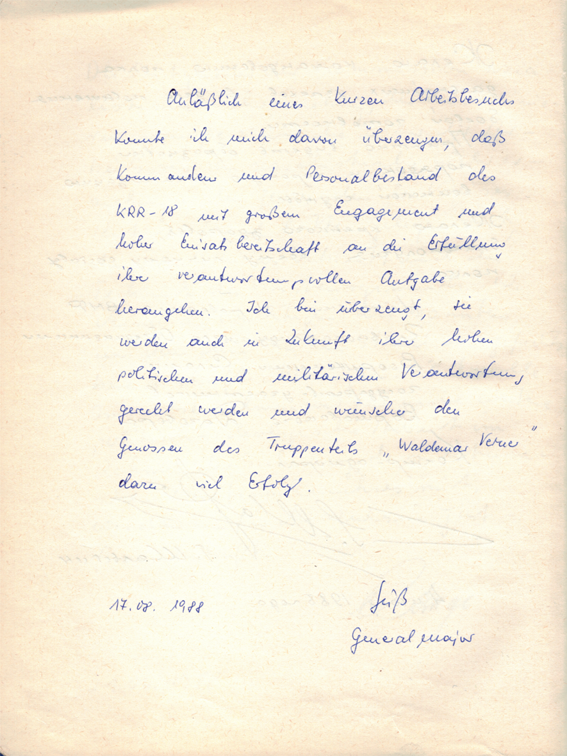 Anläßlich eines kurzen Arbeitsbesuchs
konnte ich mich davon überzeugen, daß
Kommandeur und Personalbestand des
KRR-18 mit großem Engagement und
hoher Einsatzbereitschaft an die Erfüllung
ihrer verantwortungsvollen Aufgabe
herangehen. Ich bin überzeugt, sie
werden auch in Zukunft ihrer hohen
politischen und militärischen Verantwortung
gerecht werden und wünsche den
Genossen des Truppenteils „Waldemar Verner"
dazu viel Erfolg.
17.08.1988
Generalmajor